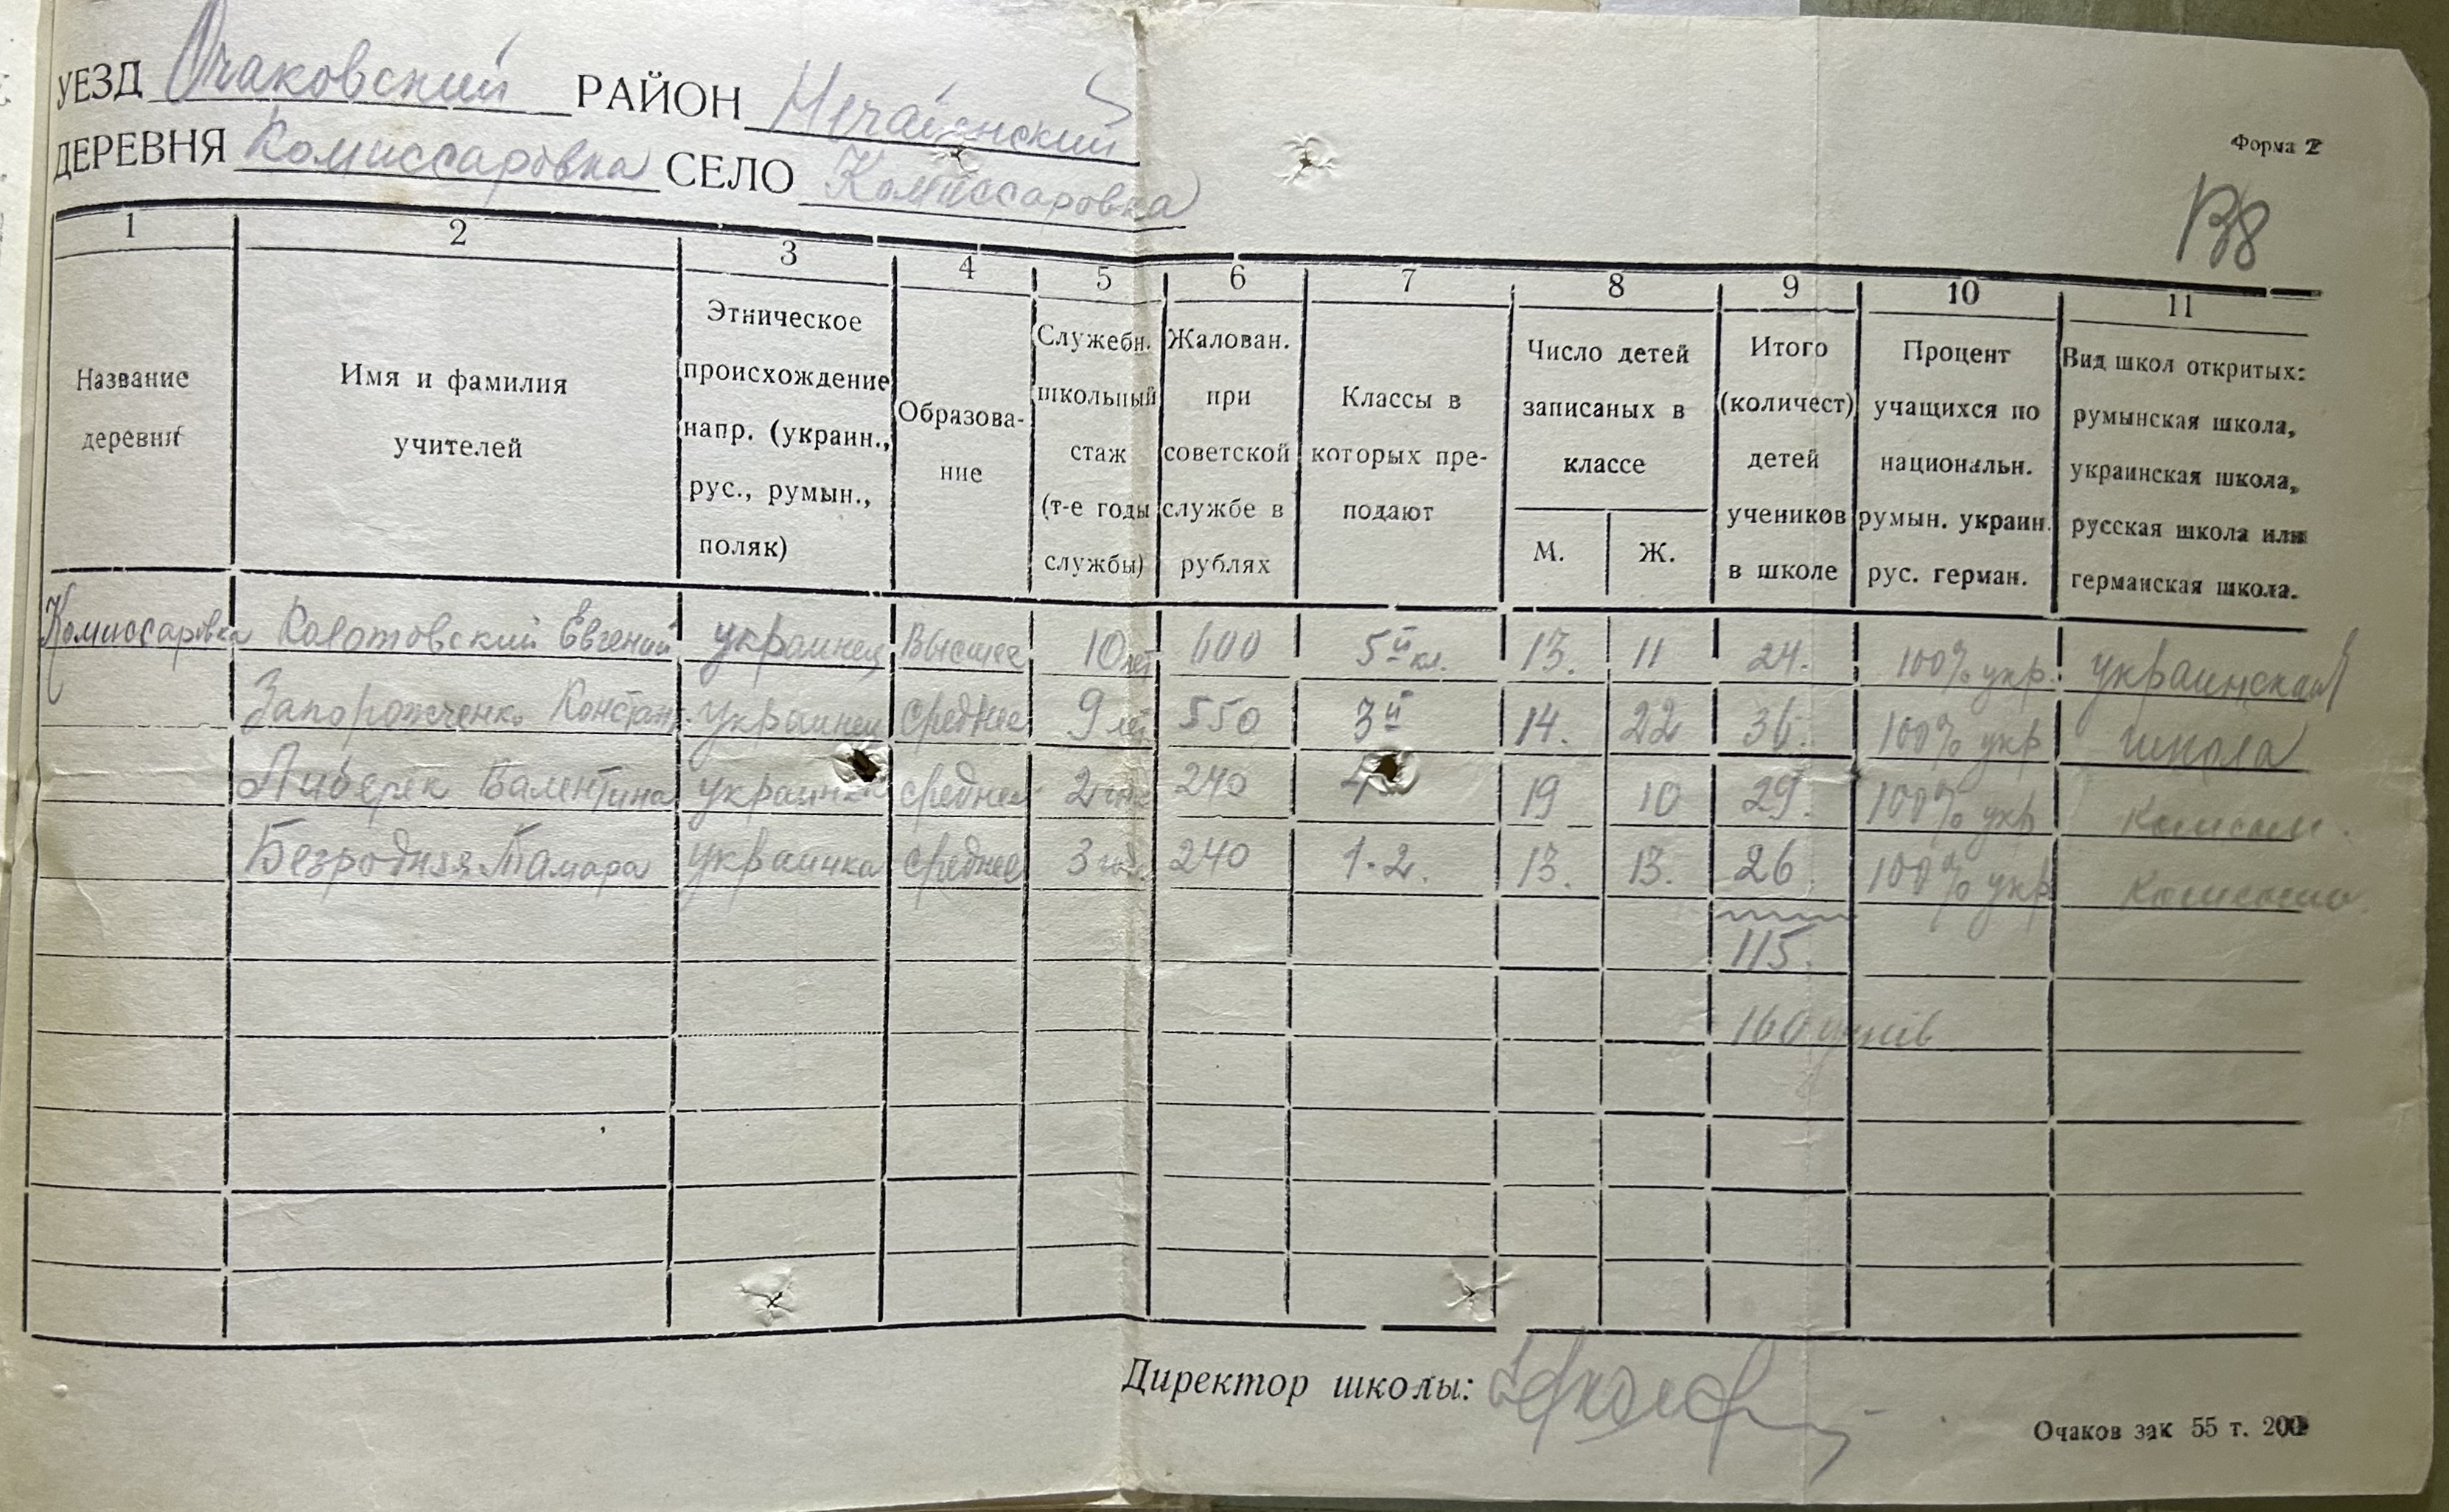 УЕЗД Очаковский РАЙОН
ДЕРЕВНЯ Комиссаровка СЕЛО Комиссаровка
Форма 2
1 2 3 4 5 6 7 8 9 10 11
Название деревни
Имя и фамилия учителей
Этническое происхождение напр. (украин., рус., румын., поляк)
Образова-ние
Служебн. школьный стаж (т-е годы службы)
Жалован. при советской службе в рублях
Классы в которых пре-подают
Число детей записаных в классе
М. Ж.
Итого (количест) детей учеников в школе
Процент учащихся по национальн. румын. украин. рус. герман.
Вид школ откритых: румынская школа, украинская школа, русская школа или германская школа.
Комиссаровка Евгений украинец Высшее 10 лет 600 5й кл. 13. 11 24. 100% укр. украинская
Запорожченко Констант. украинец среднее 9 лет 550 3й 14. 22 36. 100% укр школа
Валентина украинка среднее 2 240 19 10 29. 100% укр
Безродная Тамара украинка среднее 3 240 1-2. 13. 13. 26 100% укр
115.
160
Директор школы:
Очаков зак 55 т. 200